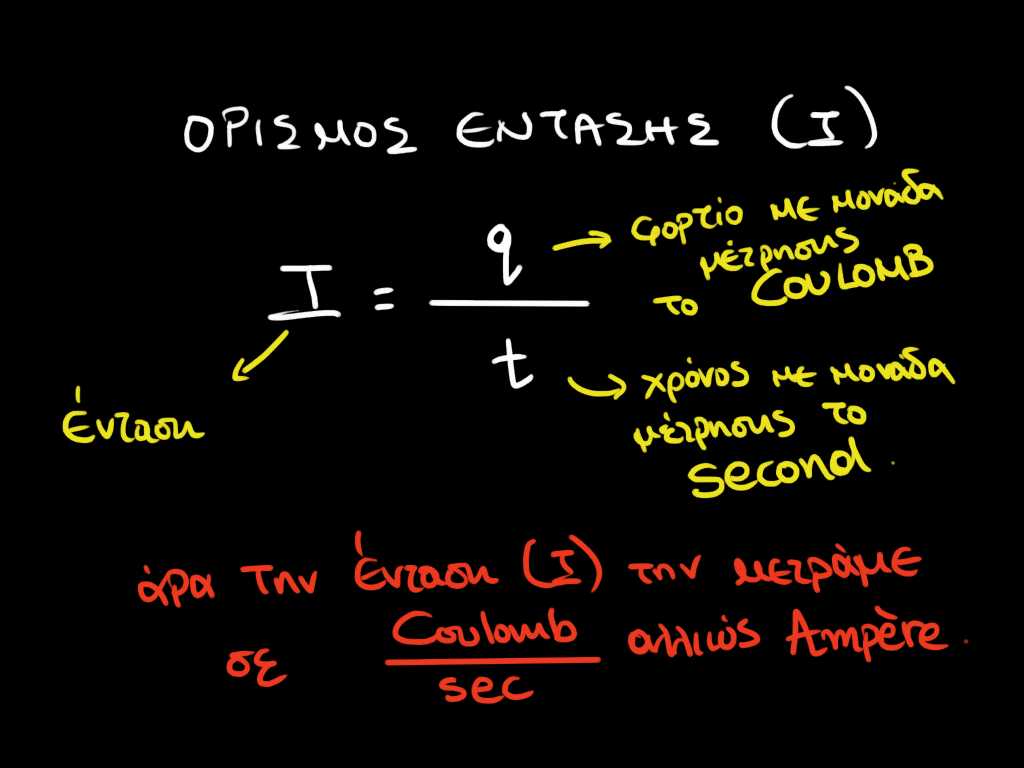 ΟΡΙΣΜΟΣ ΕΝΤΑΣΗΣ (Ι)
I = q / t
φορτίο με μονάδα
μέτρησης
το COULOMB
χρόνος με μονάδα
μέτρησης το
second.
Ένταση
άρα την Ένταση (Ι) την μετράμε
σε Coulomb / sec αλλιώς Ampère.